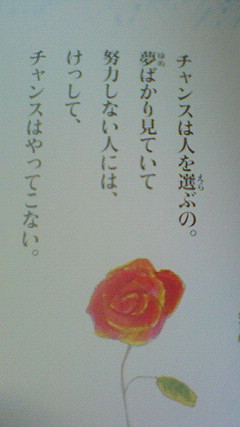 チャンスは人を選ぶの。
夢ばかり見ていて
努力しない人には、
けっして、
チャンスはやってこない。